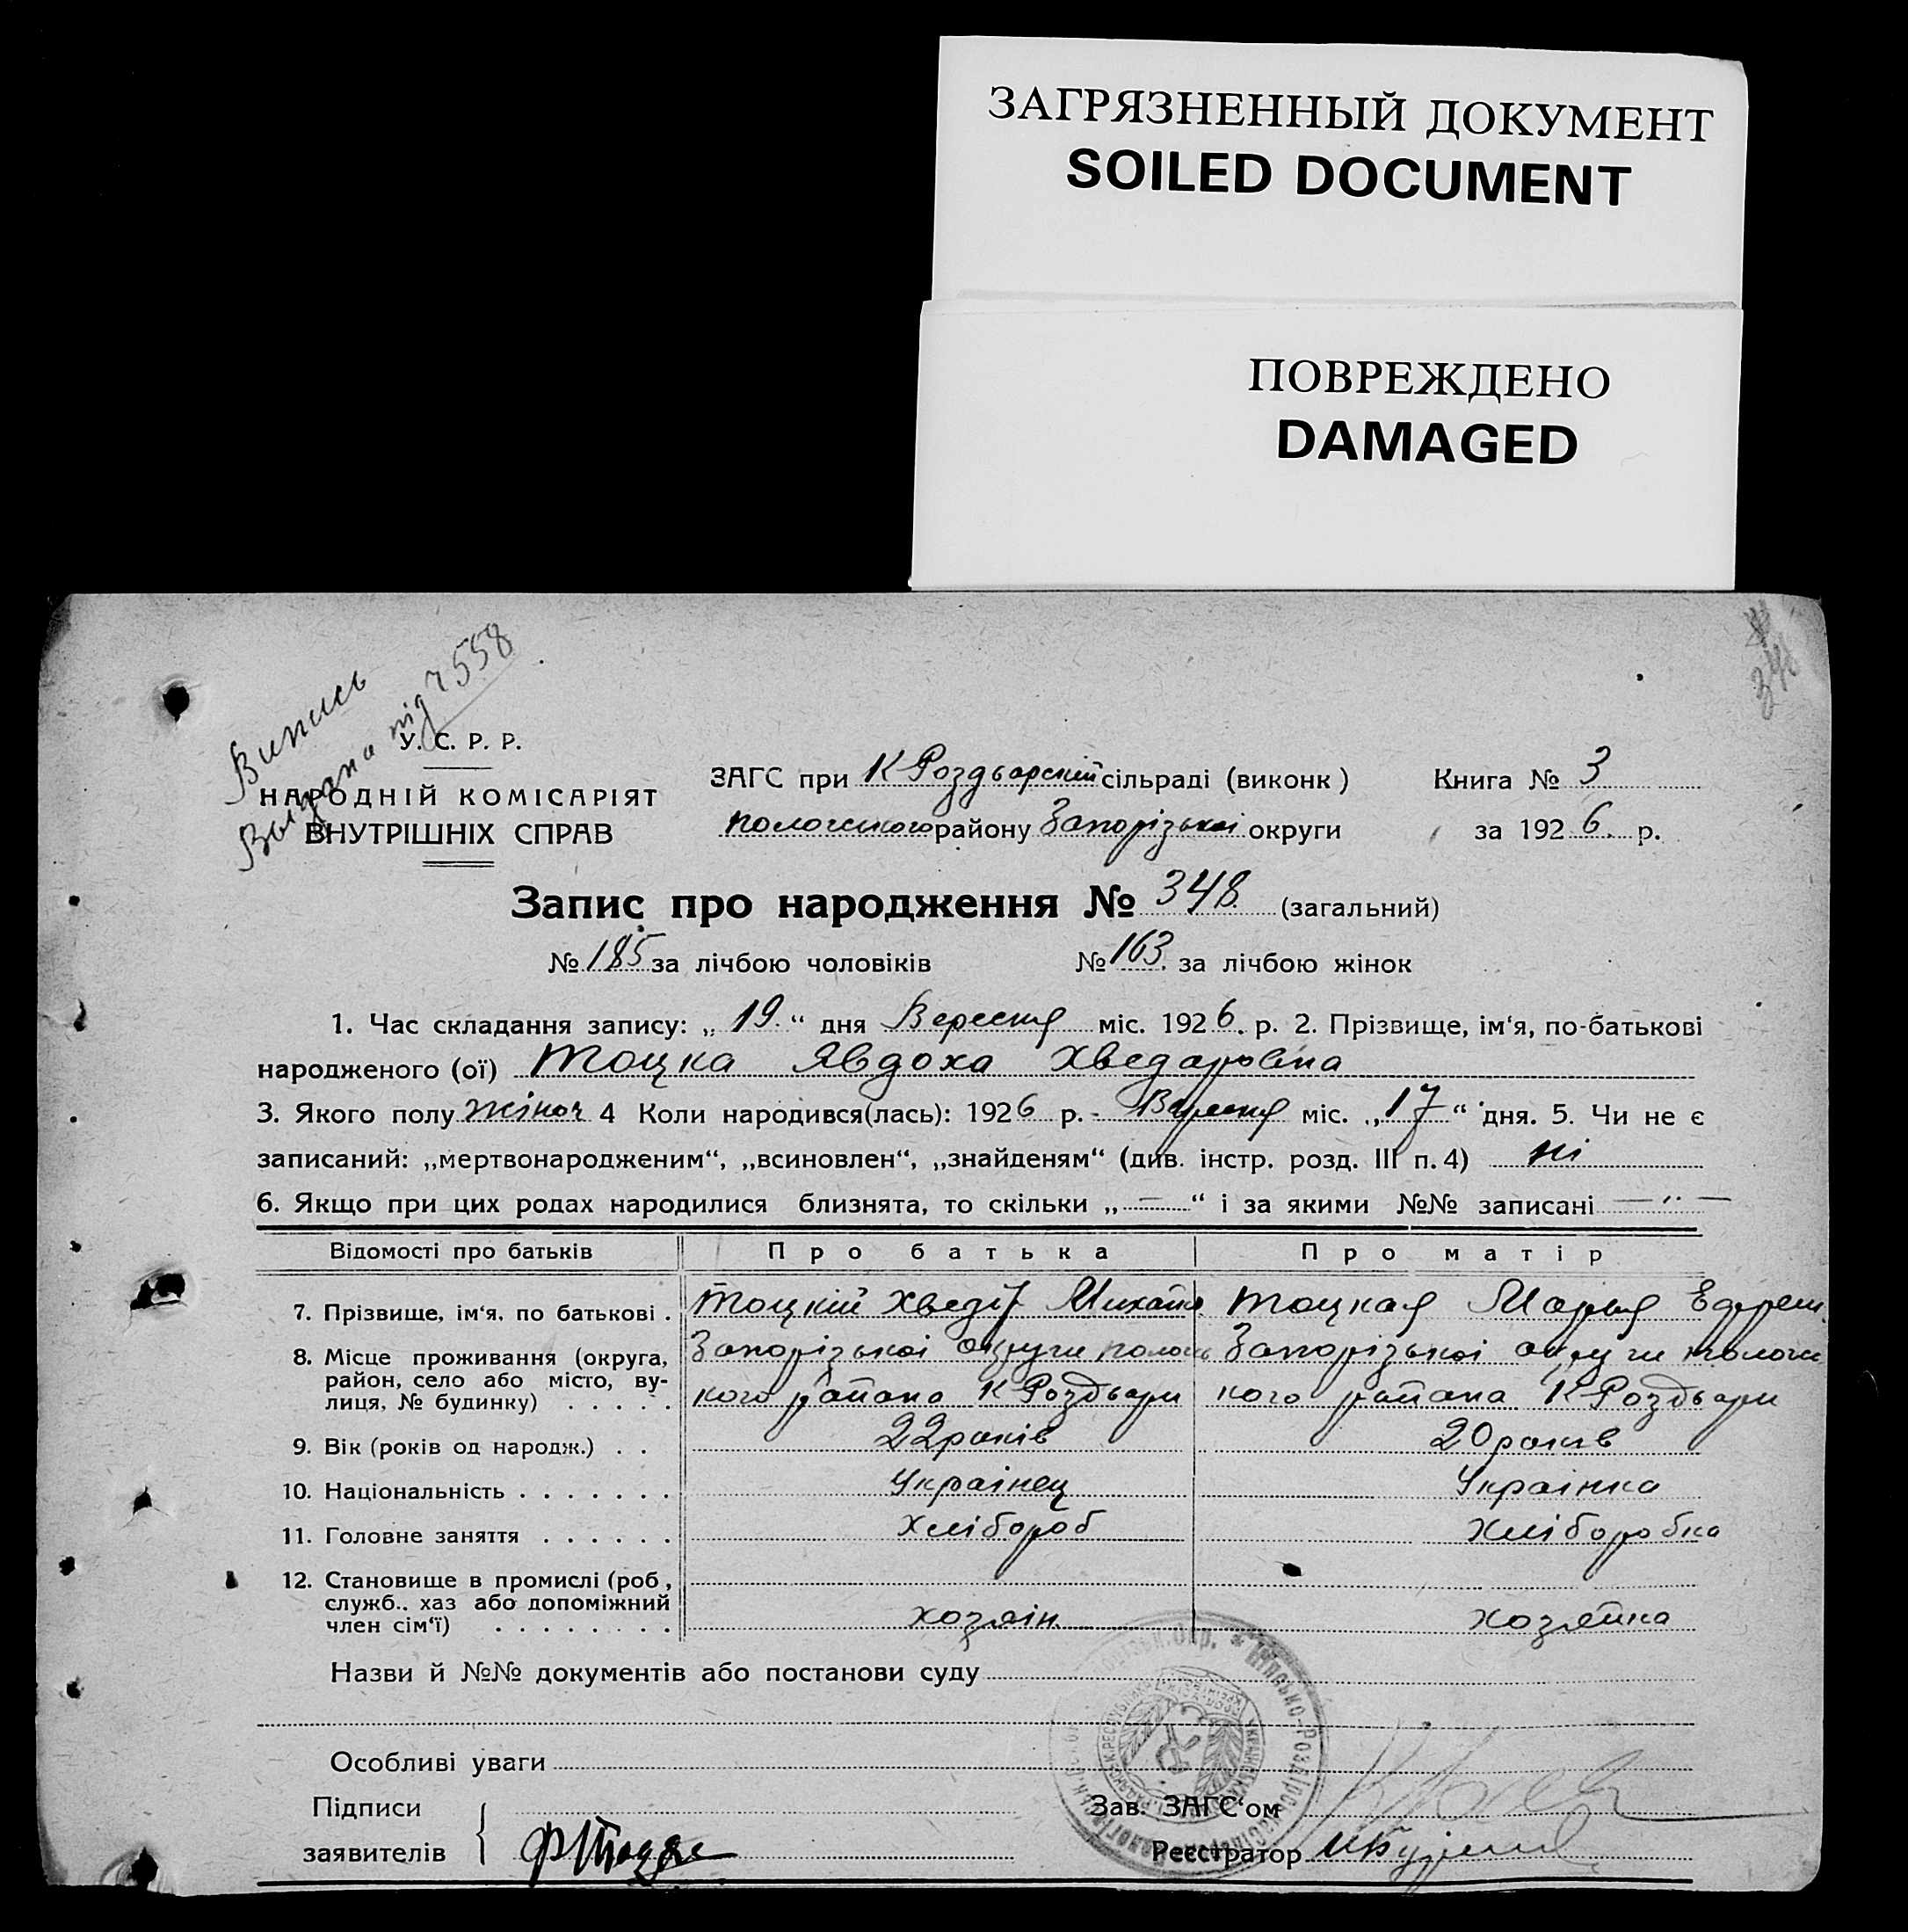 ЗАГРЯЗНЕННЫЙ ДОКУМЕНТ
SOILED DOCUMENT
ПОВРЕЖДЕНО
DAMAGED
348
Випись
Выдана під ч 558
У. С. Р. Р.
НАРОДНІЙ КОМІСАРІЯТ
ВНУТРІШНІХ СПРАВ
ЗАГС при К Роздьорскій сільраді (виконк) Книга № 3
пологського району Запорізькоі округи за 1926. р.
Запис про народження № 348 (загальний)
№ 185 за лічбою чоловіків № 163. за лічбою жінок
1. Час складання запису: „19.“ дня Вересня міс. 1926. р. 2. Прізвище, ім‘я, по-батькові
народженого (ої) Тоцка Явдоха Хведаровна
3. Якого полу жіноч 4 Коли народився(лась): 1926 р. Вересня міс. „17“ дня. 5. Чи не є
записаний: „мертвонародженим“, „всиновлен“, „знайденям“ (див. інстр. розд. III п. 4) ні
6. Якщо при цих родах народилися близнята, то скільки „—“ і за якими №№ записані — „ —
Відомості про батьків Про батька Про матір
7. Прізвище, ім‘я, по батькові . Тоцкій Хведір Михайл. Тоцкая Марья Ефрем.
8. Місце проживання (округа, Запорізькоі округи пологсь Запорізькоі округи пологсь
район, село або місто, ву- кого района К Роздьори кого района К Роздьори
лиця, № будинку) . . . . .
9. Вік (років од народж.) . . 22 років 20 років
10. Національність . . . . . . . Украінец Украінка
11. Головне заняття . . . . . . Хлібороб Хліборобка
12. Становище в промислі (роб,
служб.. хаз або допоміжний
член сім‘ї) . . . . . . . . хозяін. хозяйка
Назви й №№ документів або постанови суду
Особливі уваги
Підписи Зав. ЗАГС‘ом
заявителів Реєстратор